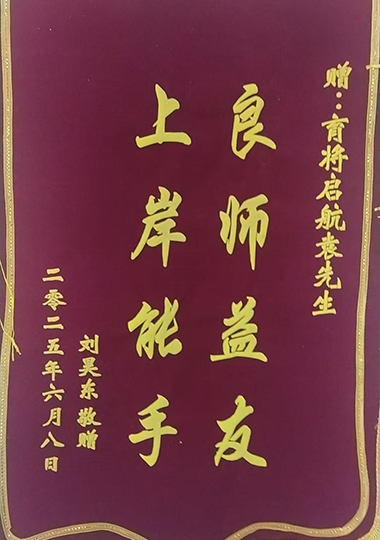 赠：育将启航袁先生
良师益友
上岸能手
刘昊东敬赠
二零二五年六月八日